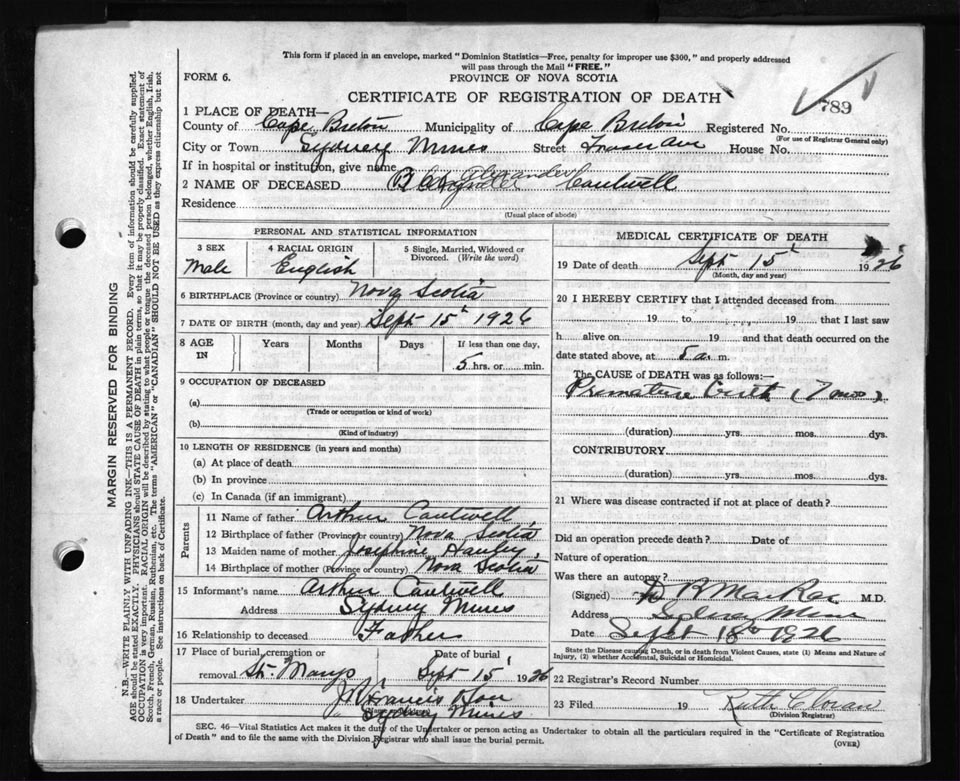 This form if placed in an envelope, marked "Dominion Statistics—Free, penalty for improper use $300," and properly addressed
will pass through the Mail "FREE."
FORM 6.
PROVINCE OF NOVA SCOTIA
CERTIFICATE OF REGISTRATION OF DEATH
789
1 PLACE OF DEATH—
County of Cape Breton Municipality of Cape Breton Registered No.
(For use of Registrar General only)
City or Town Sydney Mines Street Fraser Ave House No.
If in hospital or institution, give name
2 NAME OF DECEASED Alexander Cantwell
Residence
(Usual place of abode)
PERSONAL AND STATISTICAL INFORMATION
3 SEX
Male
4 RACIAL ORIGIN
English
5 Single, Married, Widowed or
Divorced. (Write the word)
6 BIRTHPLACE (Province or country) Nova Scotia
7 DATE OF BIRTH (month, day and year) Sept 15th 1926
8 AGE
IN
Years Months Days If less than one day,
5 hrs. or min.
9 OCCUPATION OF DECEASED
(a)
(Trade or occupation or kind of work)
(b)
(Kind of industry)
10 LENGTH OF RESIDENCE (in years and months)
(a) At place of death
(b) In province
(c) In Canada (if an immigrant)
Parents
11 Name of father Arthur Cantwell
12 Birthplace of father (Province or country) Nova Scotia
13 Maiden name of mother Josephine Hawley
14 Birthplace of mother (Province or country) Nova Scotia
15 Informant's name Arthur Cantwell
Address Sydney Mines
16 Relationship to deceased Father
17 Place of burial, cremation or Date of burial
removal St. Marys Sept 15 1926
18 Undertaker J Francis & Son
Sydney Mines
MEDICAL CERTIFICATE OF DEATH
19 Date of death Sept 15th 1926
(Month, day and year)
20 I HEREBY CERTIFY that I attended deceased from
19 to 19 that I last saw
h alive on 19 and that death occurred on the
date stated above, at 5 a. m.
The CAUSE of DEATH was as follows:—
Premature Birth (7 mos)
(duration) yrs. mos. dys.
CONTRIBUTORY
(duration) yrs. mos. dys.
21 Where was disease contracted if not at place of death?
Did an operation precede death? Date of
Nature of operation
Was there an autopsy?
(Signed) MacRae M.D.
Address Sydney Mines
Date Sept 18th 1926
State the Disease causing Death, or in death from Violent Causes, state (1) Means and Nature of
Injury, (2) whether Accidental, Suicidal or Homicidal.
22 Registrar's Record Number
23 Filed 19 Ruth
(Division Registrar)
SEC. 46—Vital Statistics Act makes it the duty of the Undertaker or person acting as Undertaker to obtain all the particulars required in the "Certificate of Registration
of Death" and to file the same with the Division Registrar who shall issue the burial permit.
(OVER)
MARGIN RESERVED FOR BINDING
N.B.—WRITE PLAINLY WITH UNFADING INK—THIS IS A PERMANENT RECORD. Every item of information should be carefully supplied.
AGE should be stated EXACTLY. PHYSICIANS should STATE CAUSE OF DEATH in plain terms, so that it may be properly classified. Exact statement of
OCCUPATION is very important. RACIAL ORIGIN will be described by stating to what people or tongue the deceased person belonged, whether English, Irish,
Scotch, French, German, Russian, Ruthenian, etc. The terms "AMERICAN" or "CANADIAN" SHOULD NOT BE USED as they express citizenship but not
a race or people. See instructions on back of Certificate.